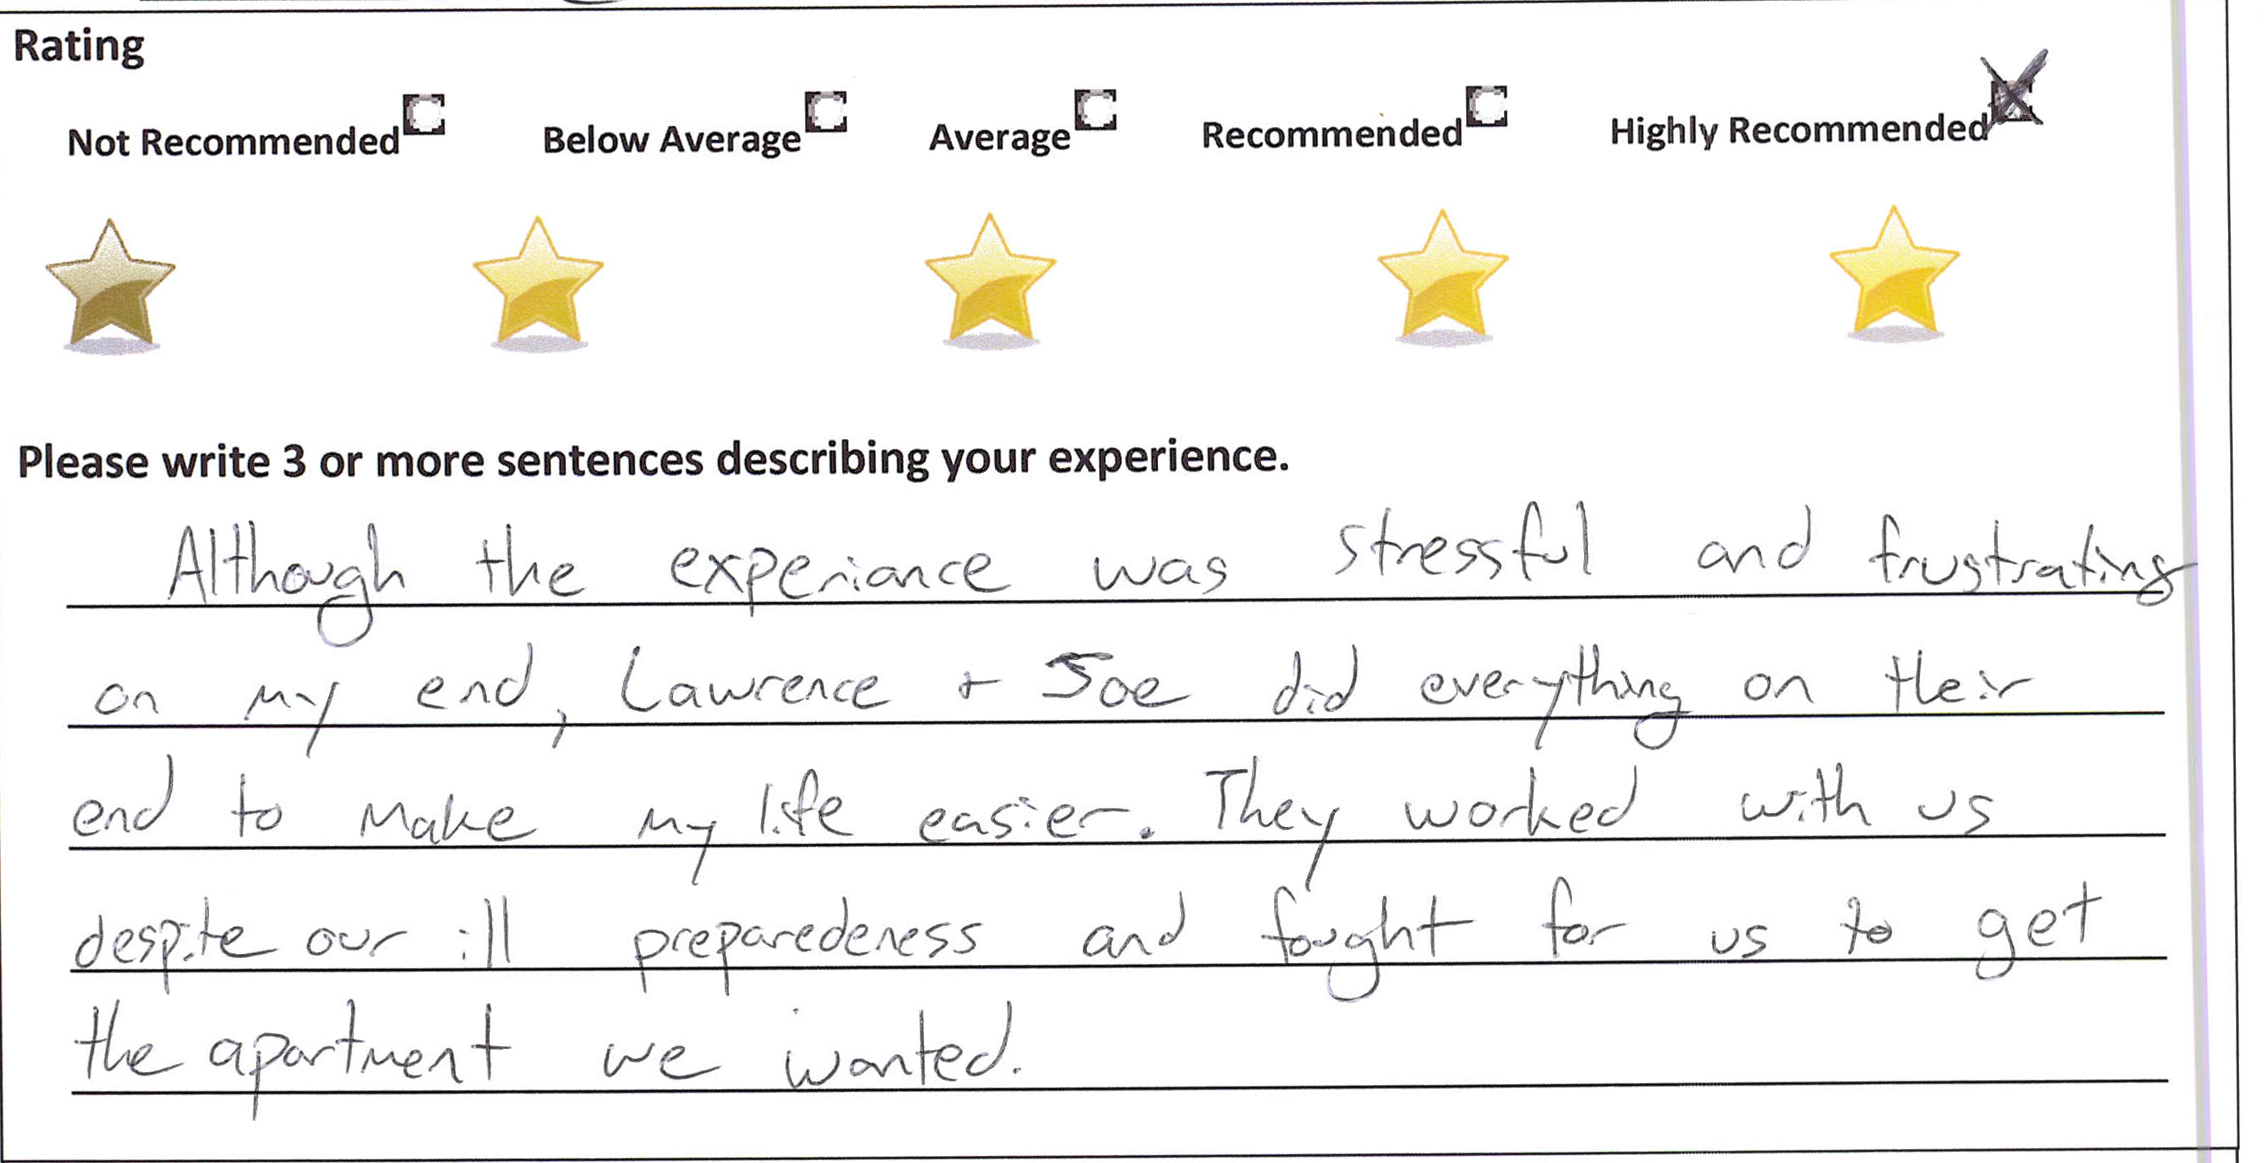 Rating
Not Recommended Below Average Average Recommended Highly Recommended
Please write 3 or more sentences describing your experience.
Although the experiance was stressful and frustrating
on my end, Lawrence + Joe did everything on their
end to make my life easier. They worked with us
despite our ill preparedeness and fought for us to get
the apartment we wanted.